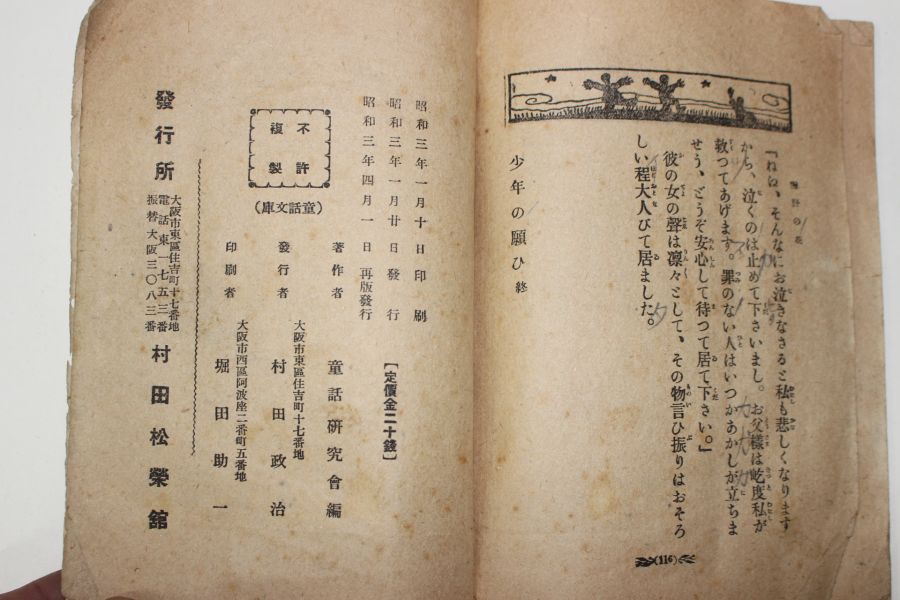 「ねね、そんなにお泣きなさると私も悲しくなります
から、泣くのは止めて下さいまし。お父様は屹度私が
救つてあげます。罪のない人はいつかあかしが立ちま
せう、どうぞ安心して待つて居て下さい。」
彼の女の聲は凛々として、その物言ひ振りはおそろ
しい程大人びて居ました。
少年の願ひ 終
(116)
昭和三年一月十日印刷
昭和三年一月廿日發行
昭和三年四月一日再版發行
【定價金二十錢】
不許複製
(童話文庫)
著作者 童話硏究會編
大阪市東區住吉町十七番地
發行者 村田政治
大阪市西區阿波座二番町五番地
印刷者 堀田助一
發行所
大阪市東區住吉町十七番地
電話東一七五三番
振替大阪三〇八三番
村田松榮舘